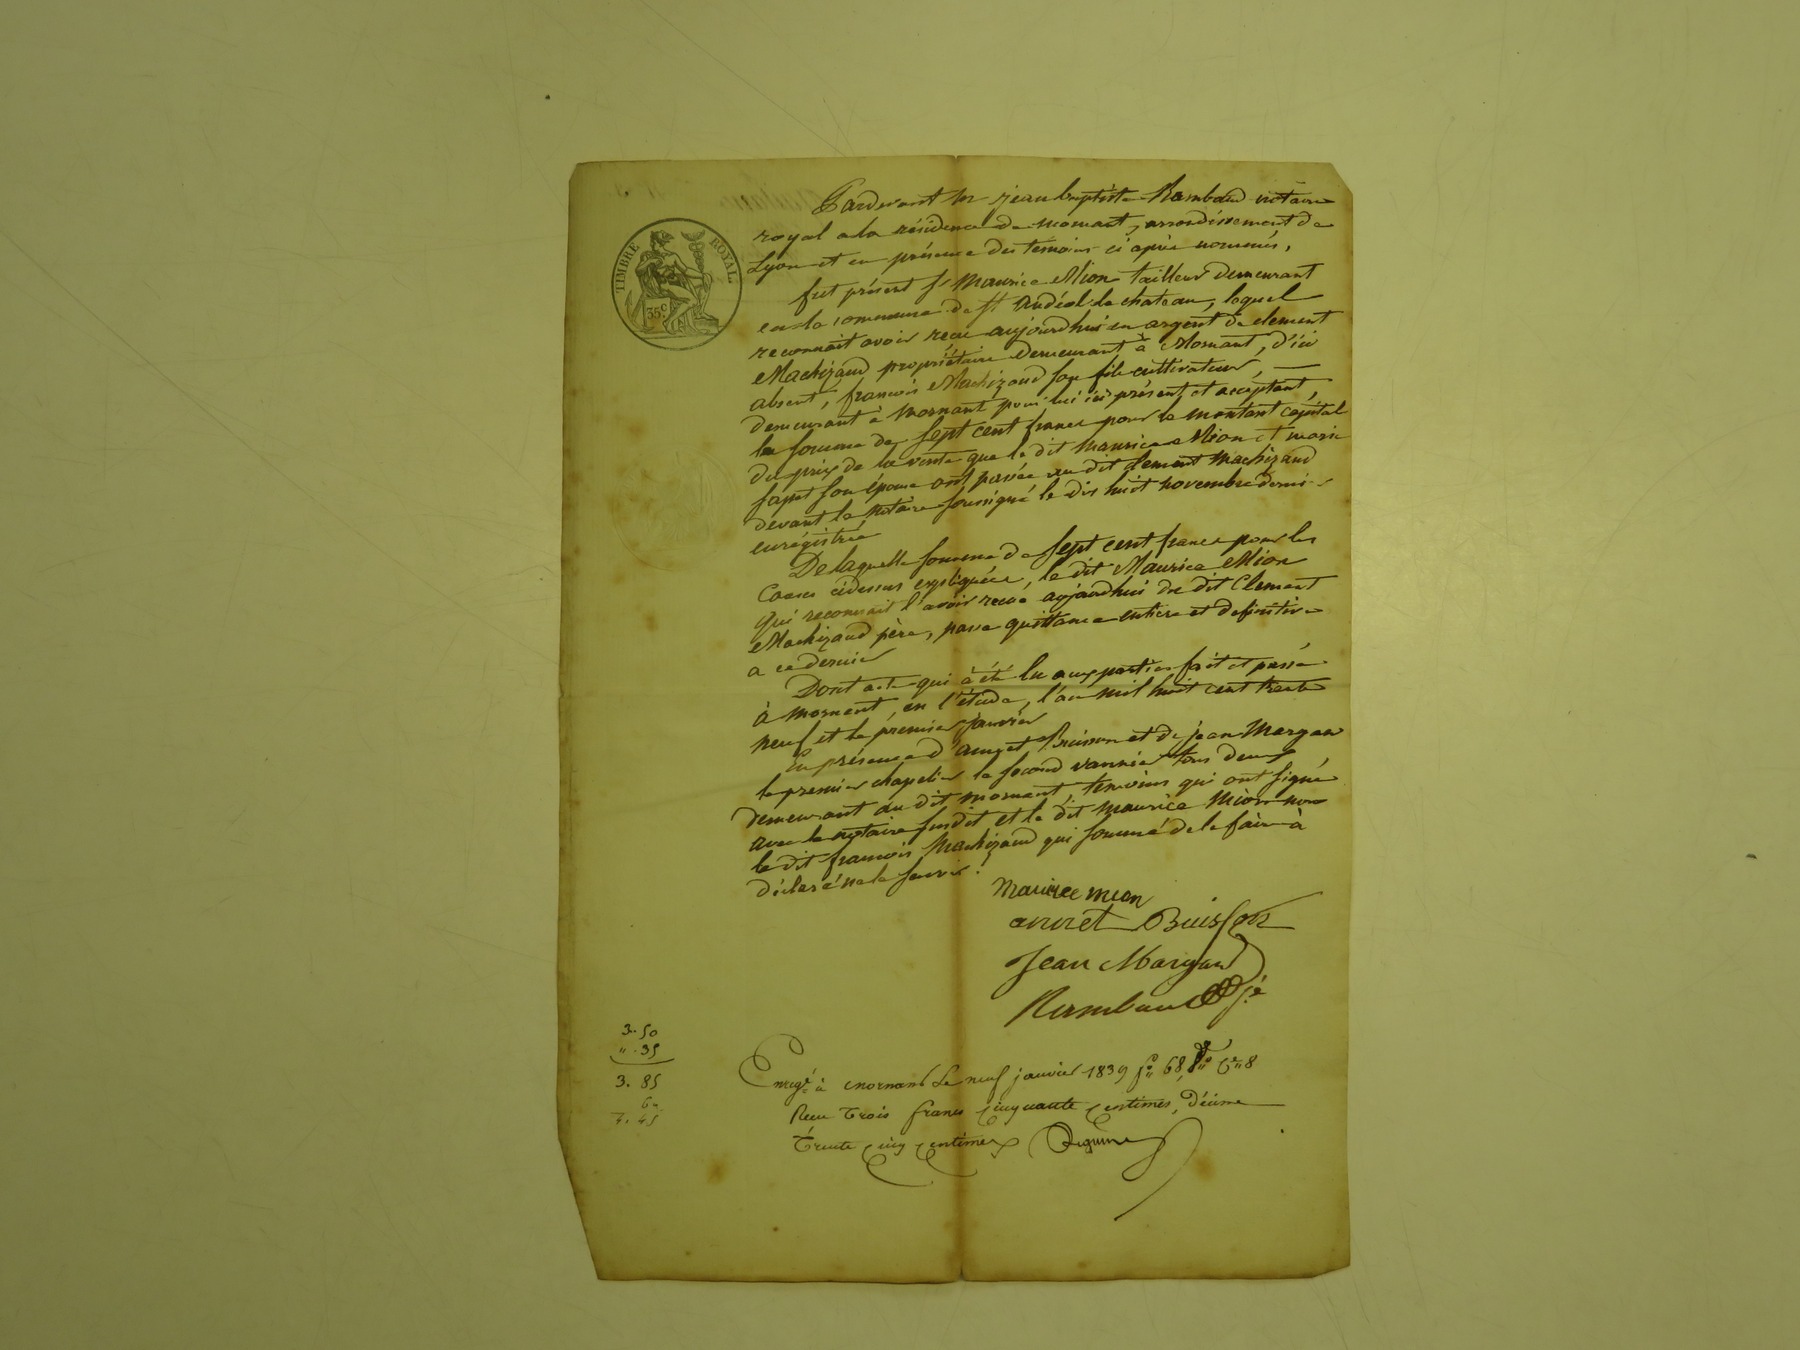 TIMBRE ROYAL
35 c.
Pardevant Me jean baptiste Rambaud notaire
royal a la résidence de mornant, arrondissement de
Lyon et en présence des temoins ci après nommés,
fut présent sr Maurice Mion tailleur demeurant
en la commune de st andéol le chateau, lequel
reconnait avoir recu aujourdhui en argent de clement
Machizaud propriétaire demeurant à Mornant, d'ici
absent, francois Machizaud son fils cultivateur, —
demeurant à mornant pour lui ici présent et acceptant,
la somme de sept cent francs pour le montant capital
du prix de la vente que le dit maurice Mion et marie
son épouse ont passée au dit clement Machizaud
devant le notaire soussigné le dix huit novembre dernier
enregistrée
De laquelle somme de sept cent francs pour les
causes cidessus expliquées, le dit Maurice Mion
qui reconnait l'avoir recue aujourdhui du dit Clement
Machizaud père, passe quittance entiere et definitive
a ce dernier
Dont acte qui à été lu aux parties fait et passé
à mornant, en l'étude, l'an mil huit cent trente
neuf et le premier janvier
En présence d'annet Buisson et de jean Margan
le premier chapelier le second vannier tous deux
demeurant au dit mornant, temoins qui ont signé
avec le notaire susdit et le dit maurice Mion non
le dit francois Machizaud qui sommé de le faire à
déclaré ne le savoir.
Maurice mion
annet Buisson
Jean Margan
Rambaud
3. 50
" . 35
3. 85
60
4. 45
Enregé à mornant le neuf janvier 1839 fo 68, Ce 8
Recu trois francs cinquante centimes, décime
trente cinq centimes